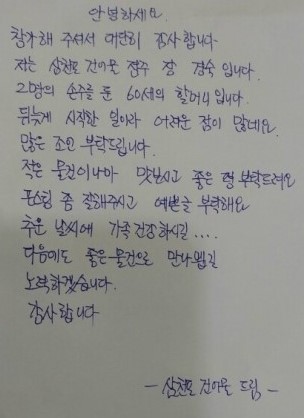 안녕하세요.
참가해 주셔서 대단히 감사합니다
저는 삼천포 건어물 점주 장 경숙 입니다.
2명의 손주를 둔 60세의 할머니 입니다.
뒤늦게 시작한 일이라 어려운 점이 많네요
많은 조언 부탁드립니다.
적은 물건이나마 맛보시고 좋은 평 부탁드려요
포스팅 좀 잘해주시고 예쁜글 부탁해요
추운 날씨에 가족건강하시길 ....
다음에도 좋은물건으로 만나뵙길
노력하겠습니다.
감사합니다
- 삼천포 건어물 드림 -